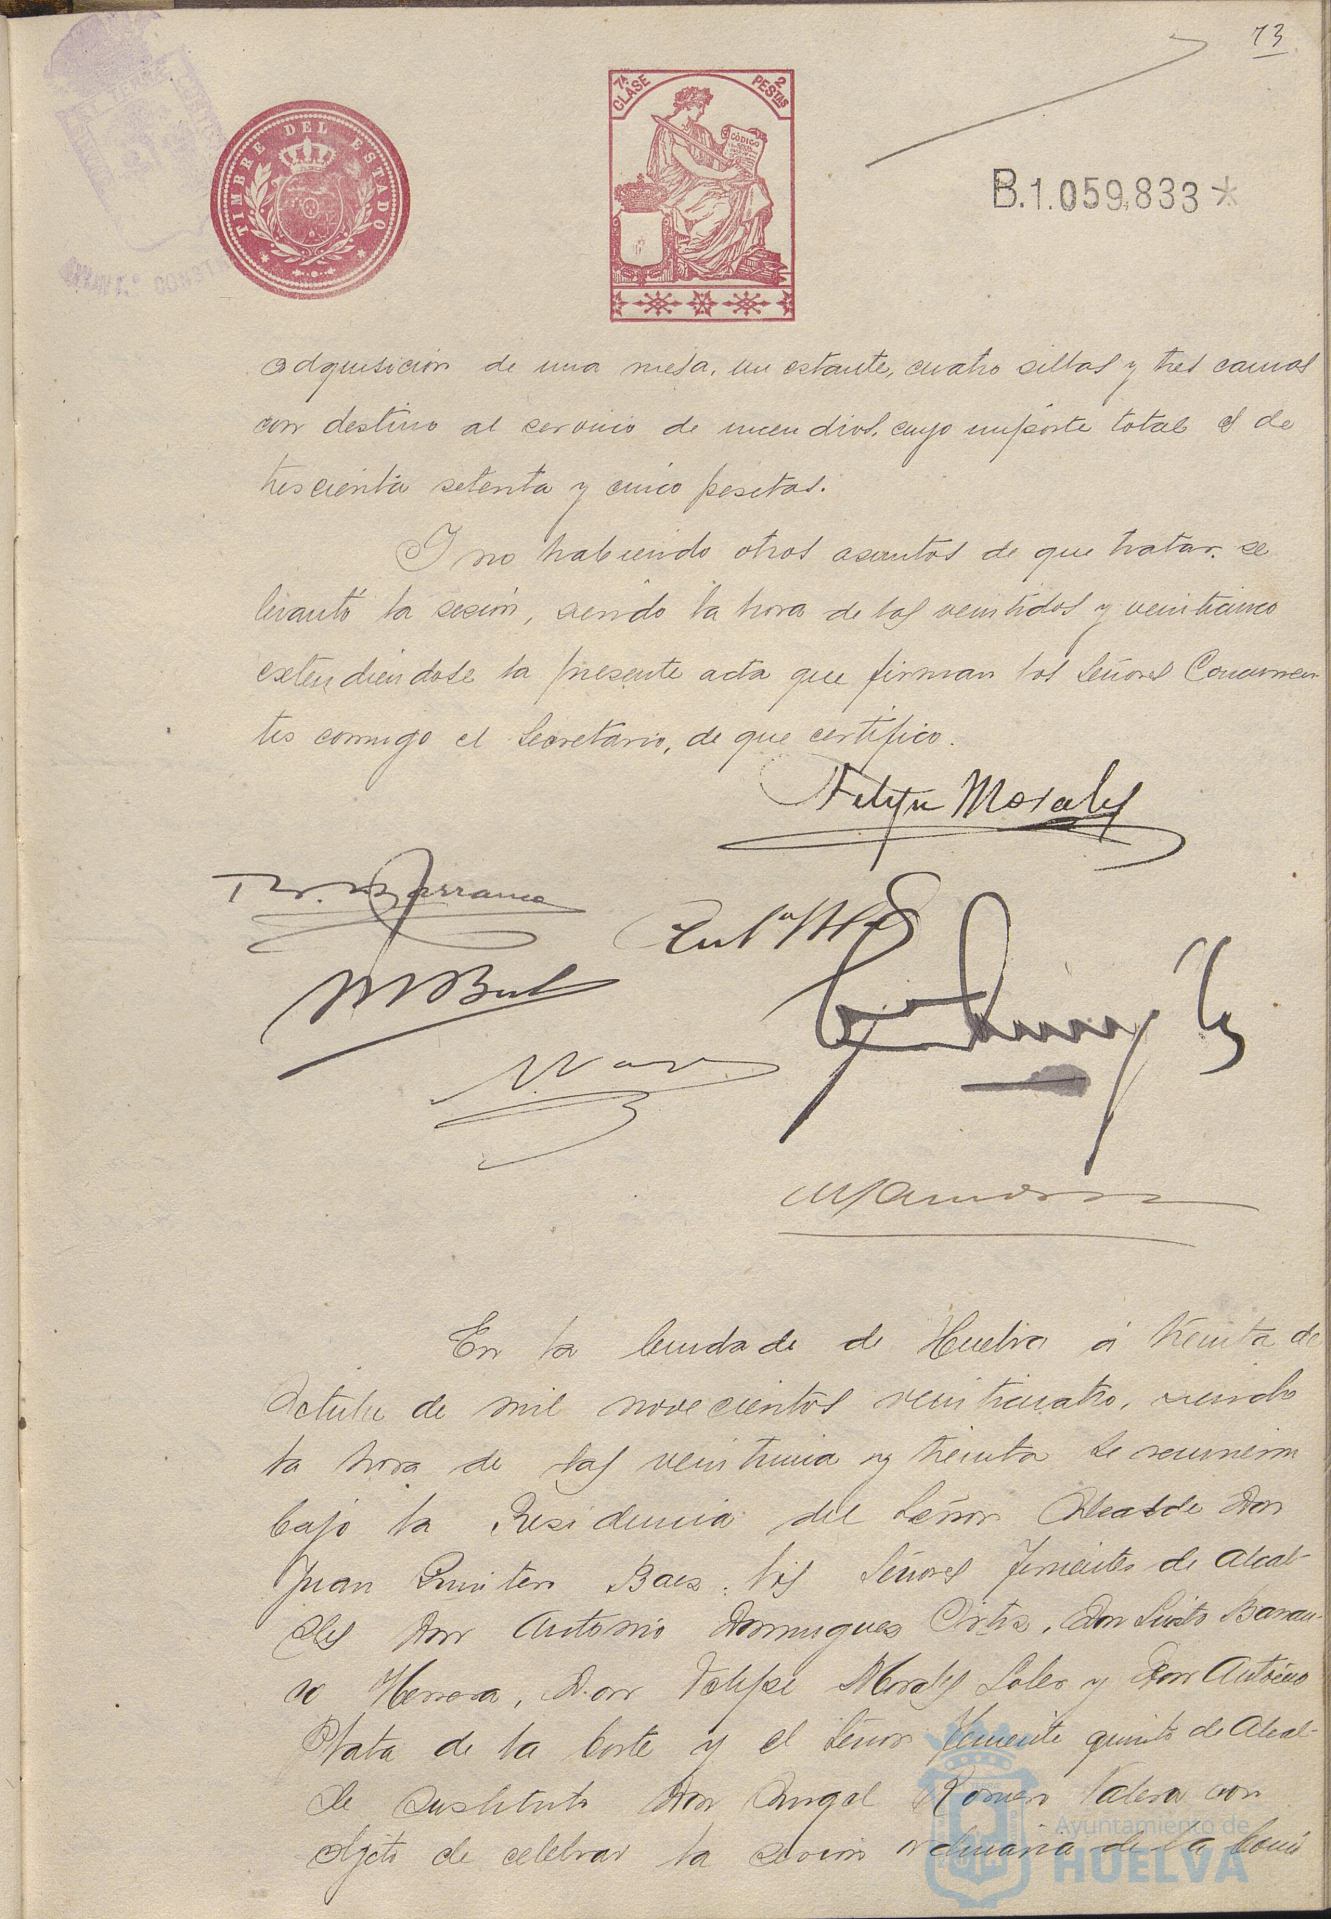 73
TIMBRE DEL ESTADO
7ª CLASE
2 PESTAS
CÓDIGO
B.1.059,833*
adquisición de una mesa, un estante, cuatro sillas y tres camas
con destino al servicio de incendios, cuyo importe total es de
trescienta setenta y cinco pesetas.
Y no habiendo otros asuntos de que tratar, se
levantó la sesión, siendo la hora de las veintidos y veinticinco
extendiéndose la presente acta que firman los Señores Concurren-
tes conmigo el Secretario, de que certifico.
Felipe Morales
En la Ciudad de de Huelva á treinta de
Octubre de mil novecientos veinticuatro, siendo
la hora de las veintiuna y treinta se reunieron
bajo la Presidencia del Señor Alcalde Don
Juan Quintero Baez, los Señores Tenientes de Alcal-
des Don Antonio Dominguez Ortiz, Don Sixto Barran-
co Herrera, Don Felipe Morales Soler y Don Antonio
Plata de la Corte y el Señor Teniente quinto de Alcal-
de sustituto Don Angel Romero Valera con
objeto de celebrar la sesion ordinaria de la Comi
Ayuntamiento de
HUELVA